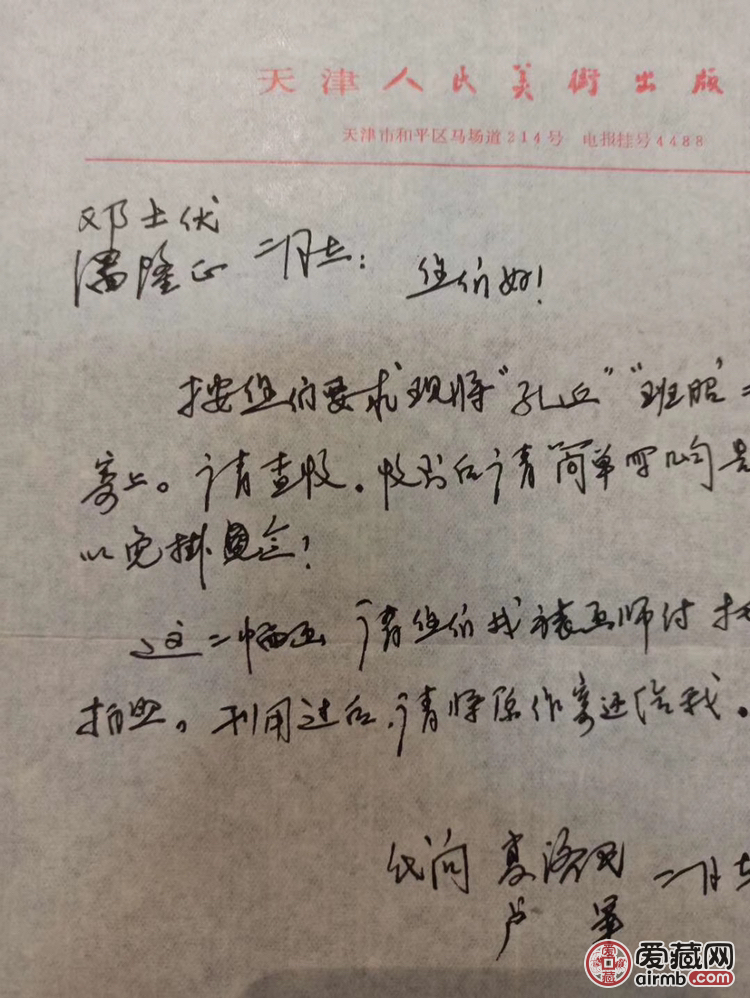 天津人民美術出版
天津市和平区马场道214号 电报挂号4488
邓士伏
潘隆正 二同志: 您们好!
按您们要求现将“孔丘”“班昭”二
寄上。请查收。收到后请简单写几句是
以免掛念!
这二幅画请您们找裱画师付托
拍照。利用过后,请将原作寄还给我。
代问 夏洛 二同志
卢
爱藏网
airmb.com